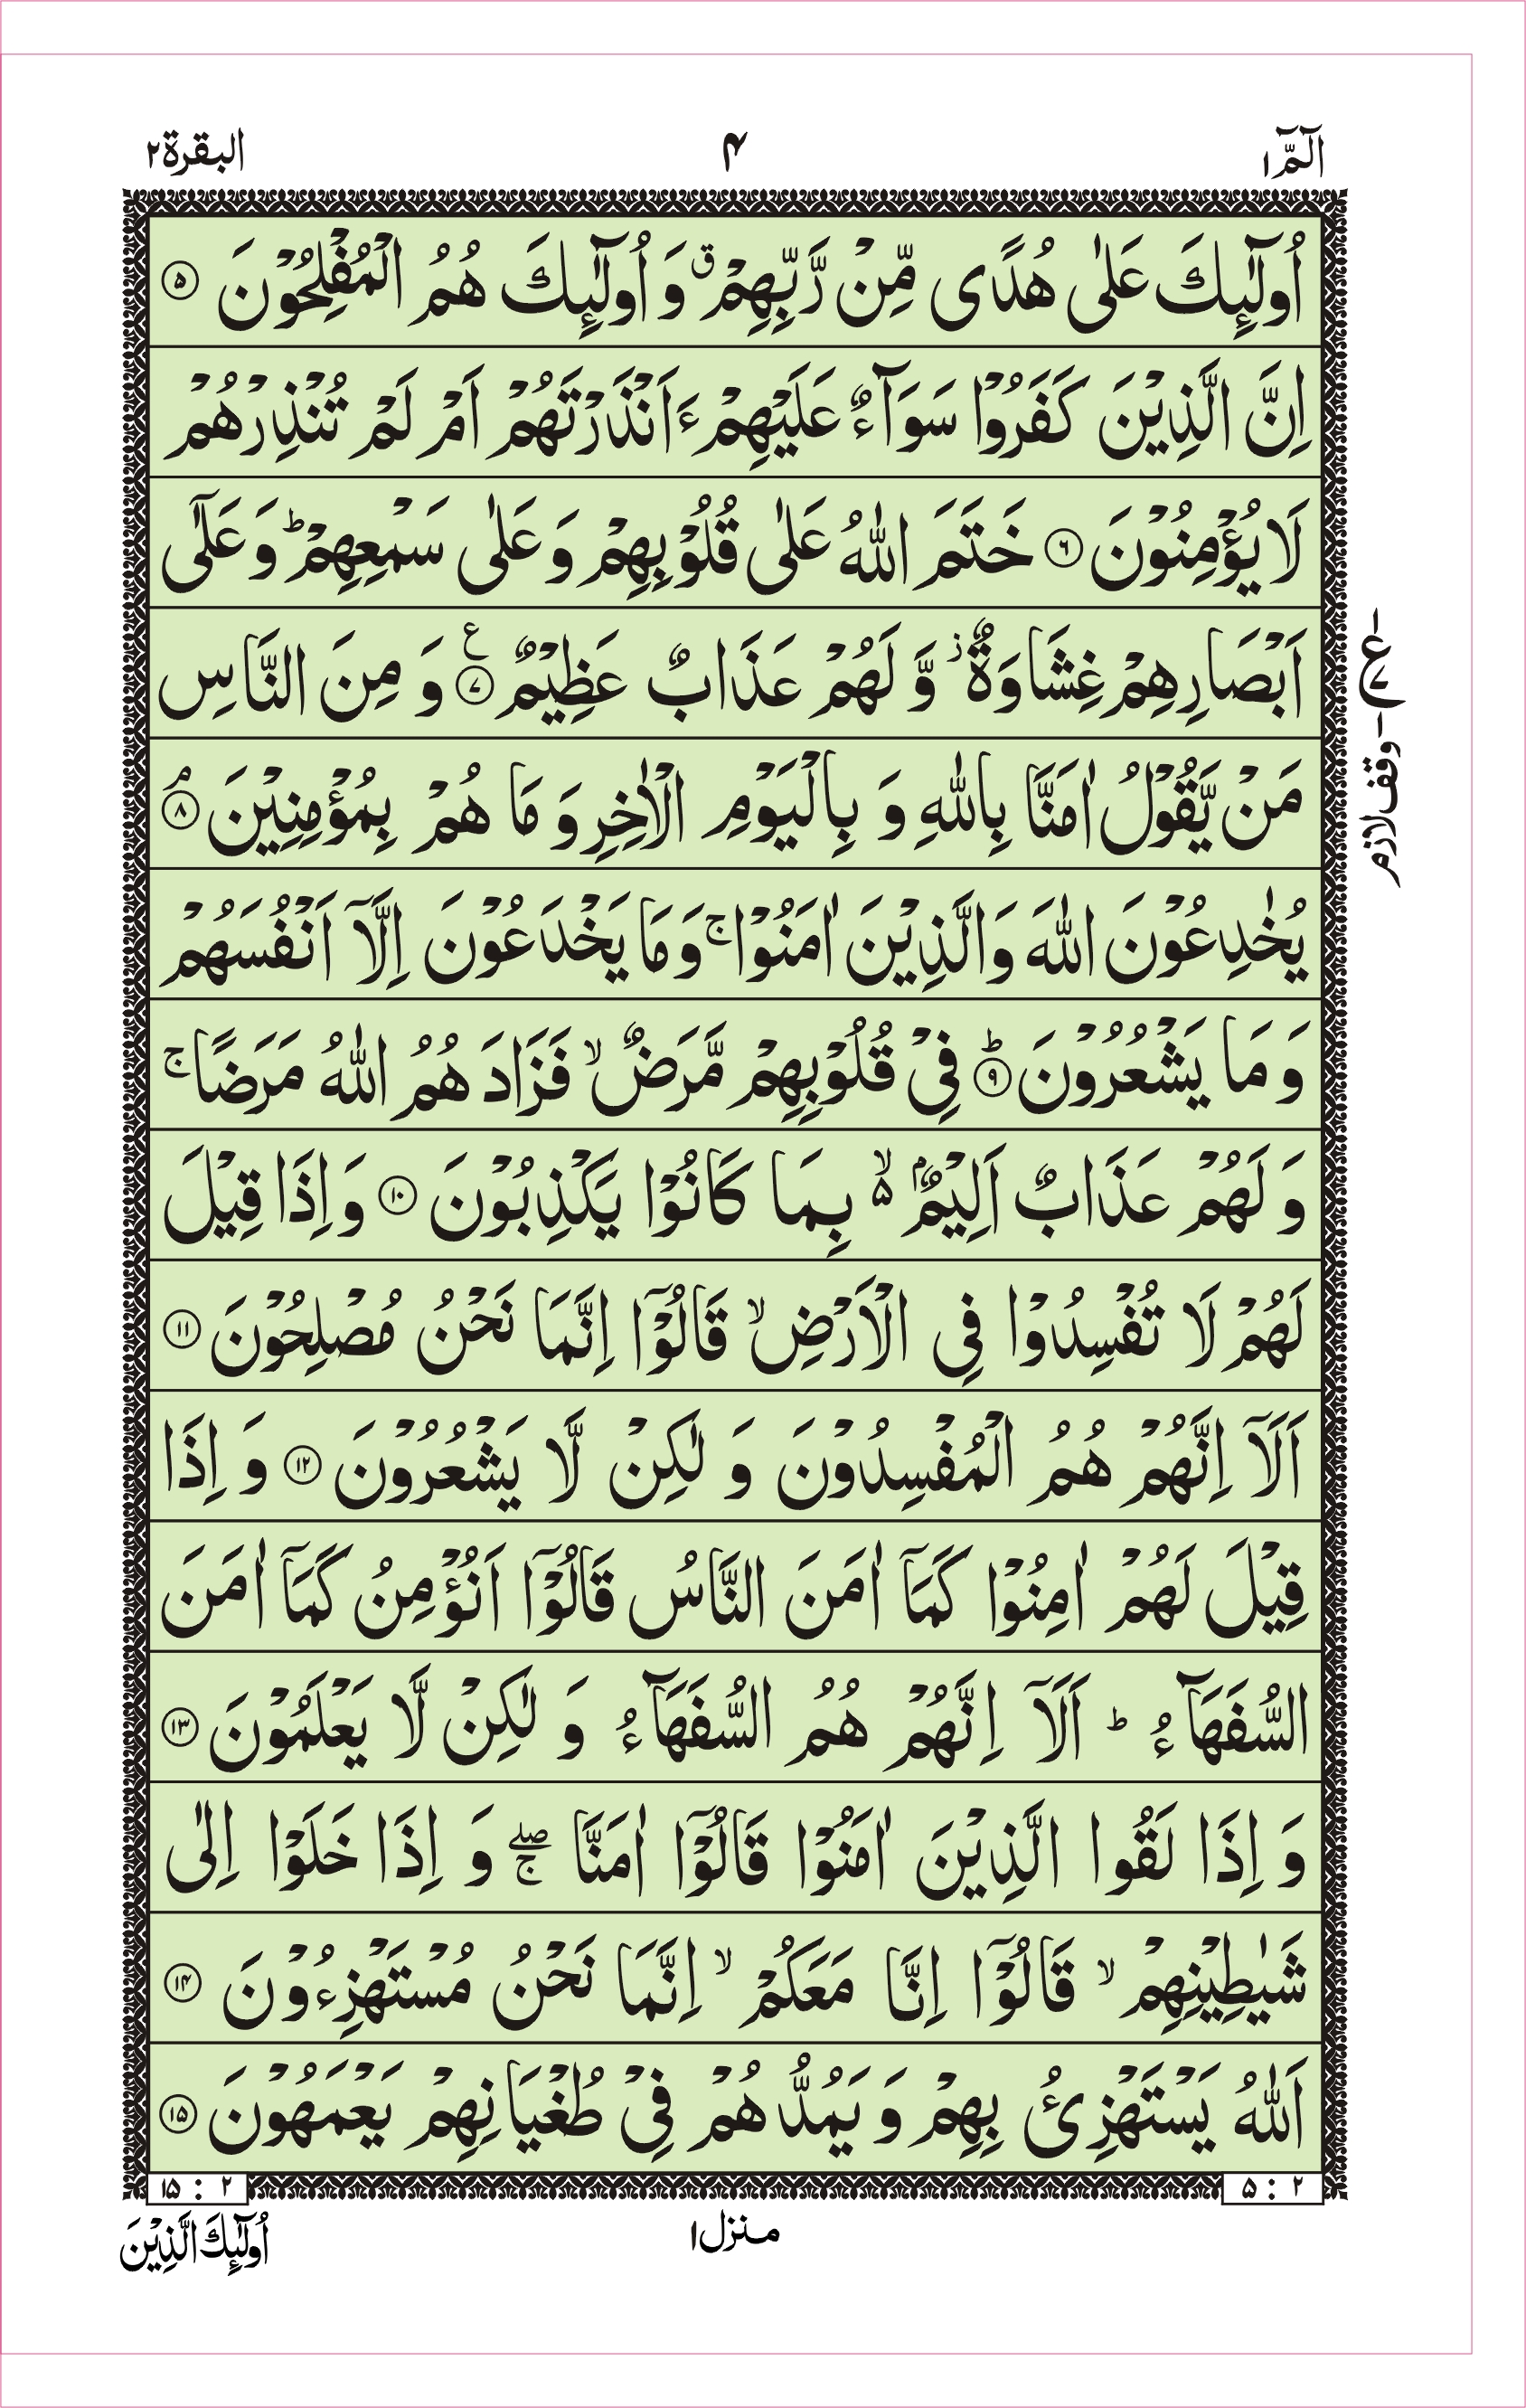 الٓمّٓ ١
۴
البقرة ٢
اُولٰٓئِكَ عَلٰى هُدًى مِّنْ رَّبِّهِمْ ۗ وَ اُولٰٓئِكَ هُمُ الْمُفْلِحُوْنَ ۵
اِنَّ الَّذِيْنَ كَفَرُوْا سَوَآءٌ عَلَيْهِمْ ءَاَنْذَرْتَهُمْ اَمْ لَمْ تُنْذِرْهُمْ
لَا يُؤْمِنُوْنَ ۶ خَتَمَ اللّٰهُ عَلٰى قُلُوْبِهِمْ وَ عَلٰى سَمْعِهِمْ ؕ وَ عَلٰٓى
اَبْصَارِهِمْ غِشَاوَةٌ ز وَّ لَهُمْ عَذَابٌ عَظِيْمٌ ۷ ع وَ مِنَ النَّاسِ
مَنْ يَّقُوْلُ اٰمَنَّا بِاللّٰهِ وَ بِالْيَوْمِ الْاٰخِرِ وَ مَا هُمْ بِمُؤْمِنِيْنَ ۸ۘ
يُخٰدِعُوْنَ اللّٰهَ وَالَّذِيْنَ اٰمَنُوْا ۚ وَ مَا يَخْدَعُوْنَ اِلَّآ اَنْفُسَهُمْ
وَ مَا يَشْعُرُوْنَ ۹ؕ فِيْ قُلُوْبِهِمْ مَّرَضٌ ۙ فَزَادَهُمُ اللّٰهُ مَرَضًا ۚ
وَ لَهُمْ عَذَابٌ اَلِيْمٌۢ ۙ۵ بِمَا كَانُوْا يَكْذِبُوْنَ ۱۰ وَ اِذَا قِيْلَ
لَهُمْ لَا تُفْسِدُوْا فِي الْاَرْضِ ۙ قَالُوْٓا اِنَّمَا نَحْنُ مُصْلِحُوْنَ ۱۱
اَلَآ اِنَّهُمْ هُمُ الْمُفْسِدُوْنَ وَ لٰكِنْ لَّا يَشْعُرُوْنَ ۱۲ وَ اِذَا
قِيْلَ لَهُمْ اٰمِنُوْا كَمَآ اٰمَنَ النَّاسُ قَالُوْٓا اَنُؤْمِنُ كَمَآ اٰمَنَ
السُّفَهَآءُ ؕ اَلَآ اِنَّهُمْ هُمُ السُّفَهَآءُ وَ لٰكِنْ لَّا يَعْلَمُوْنَ ۱۳
وَ اِذَا لَقُوا الَّذِيْنَ اٰمَنُوْا قَالُوْٓا اٰمَنَّا ۖۚ وَ اِذَا خَلَوْا اِلٰى
شَيٰطِيْنِهِمْ ۙ قَالُوْٓا اِنَّا مَعَكُمْ ۙ اِنَّمَا نَحْنُ مُسْتَهْزِءُوْنَ ۱۴
اَللّٰهُ يَسْتَهْزِئُ بِهِمْ وَ يَمُدُّهُمْ فِيْ طُغْيَانِهِمْ يَعْمَهُوْنَ ۱۵
ع ۷ وقف لازم
٢ : ۵
٢ : ۱۵
منزل ۱
اُولٰٓئِكَ الَّذِيْنَ